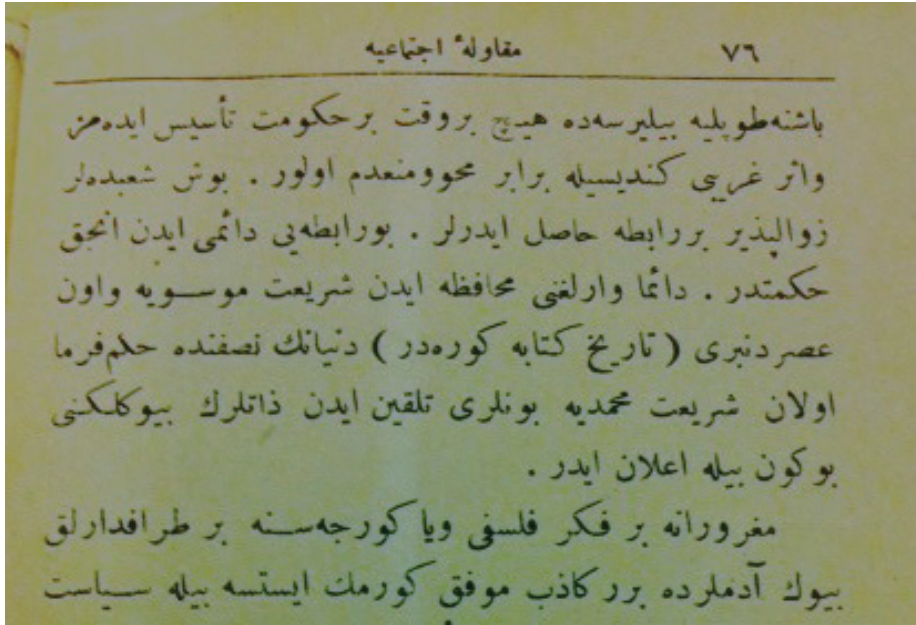 ٧٦ مقاولۀ اجتماعیه
باشنه‌طوپلیه بیلیرسه‌ده هیچ بروقت برحکومت تأسیس ایده‌مز
واثر غریبی کندیسیله برابر محوومنعدم اولور . بوش شعبده‌لر
زوالپذیر بررابطه حاصل ایدرلر . بورابطه‌یی دائمی ایدن انجق
حکمتدر . دائما وارلغنی محافظه ایدن شریعت موسویه واون
عصردنبری ( تاریخ کتابه کوره‌در ) دنیانك نصفنده حکمفرما
اولان شریعت محمدیه بونلری تلقین ایدن ذاتلرك بیوکلکنی
بوکون بیله اعلان ایدر .
مغرورانه بر فکر فلسفی ویا کورجه‌سنه بر طرافدارلق
بیوك آدملرده برر کاذب موفق کورمك ایستسه بیله سیاست